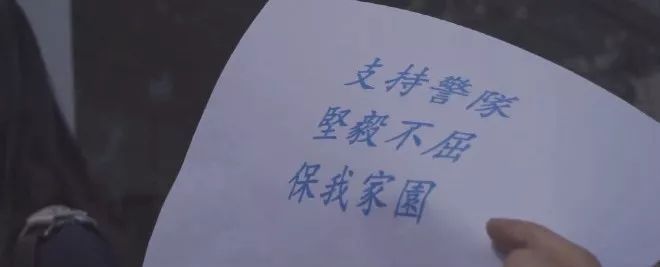 支持警隊
堅毅不屈
保我家園